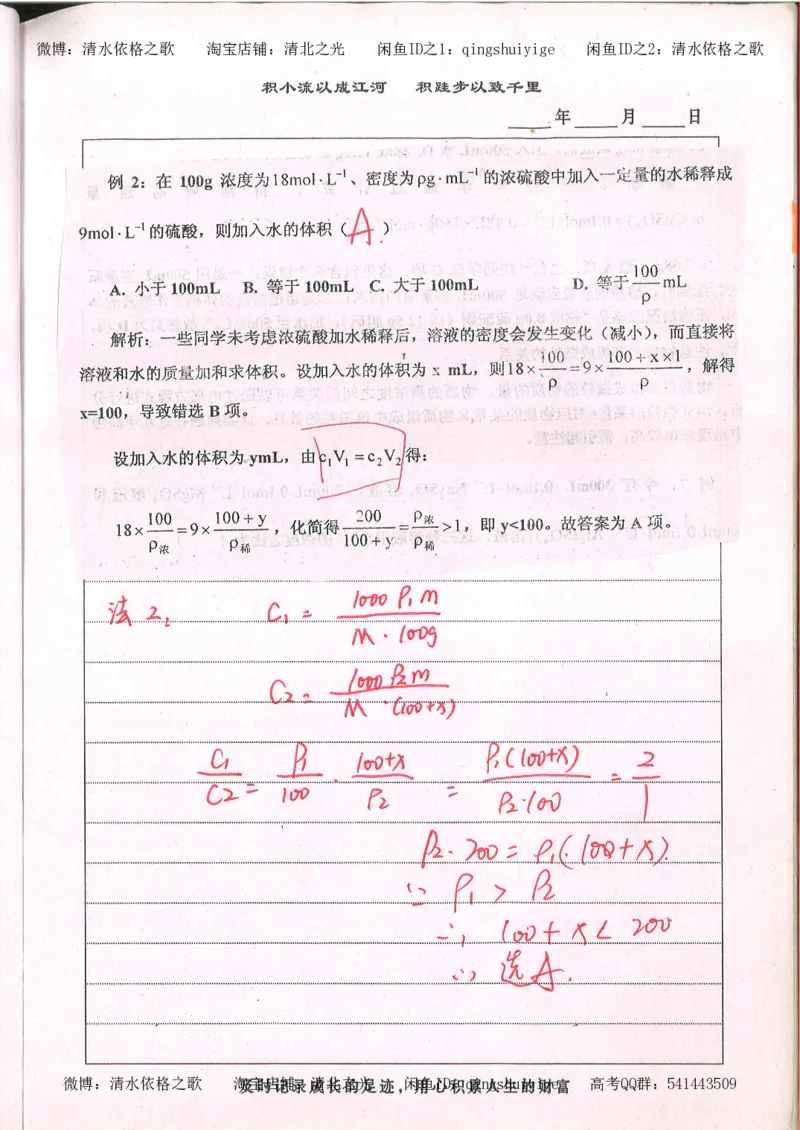 微博：清水依格之歌 淘宝店铺：清北之光 闲鱼ID之1：qingshuiyige 闲鱼ID之2：清水依格之歌
积小流以成江河 积跬步以致千里
____年____月____日
例 2：在 100g 浓度为18mol·L⁻¹、密度为ρg·mL⁻¹ 的浓硫酸中加入一定量的水稀释成
9mol·L⁻¹的硫酸，则加入水的体积（A）
A. 小于100mL B. 等于 100mL C. 大于 100mL D. 等于 100/ρ mL
解析：一些同学未考虑浓硫酸加水稀释后，溶液的密度会发生变化（减小），而直接将
溶液和水的质量加和求体积。设加入水的体积为 x mL，则18×100/ρ=9×(100+x×1)/ρ，解得
x=100，导致错选 B 项。
设加入水的体积为 ymL，由c₁V₁=c₂V₂得：
18×100/ρ浓=9×(100+y)/ρ稀，化简得 200/(100+y)=ρ浓/ρ稀>1，即 y<100。故答案为 A 项。
法2： C₁=1000ρ₁m/(M·100g)
C₂=1000ρ₂m/(M·(100+x))
C₁/C₂=ρ₁/100·(100+x)/ρ₂=ρ₁(100+x)/(ρ₂·100)=2/1
ρ₂·200=ρ₁·(100+x).
∵ρ₁>ρ₂
∴100+x<200
∴选A.
微博：清水依格之歌 淘宝店铺：清北之光 闲鱼ID：qingshuiyige 高考QQ群：541443509
及时记录成长的足迹，用心积累人生的财富